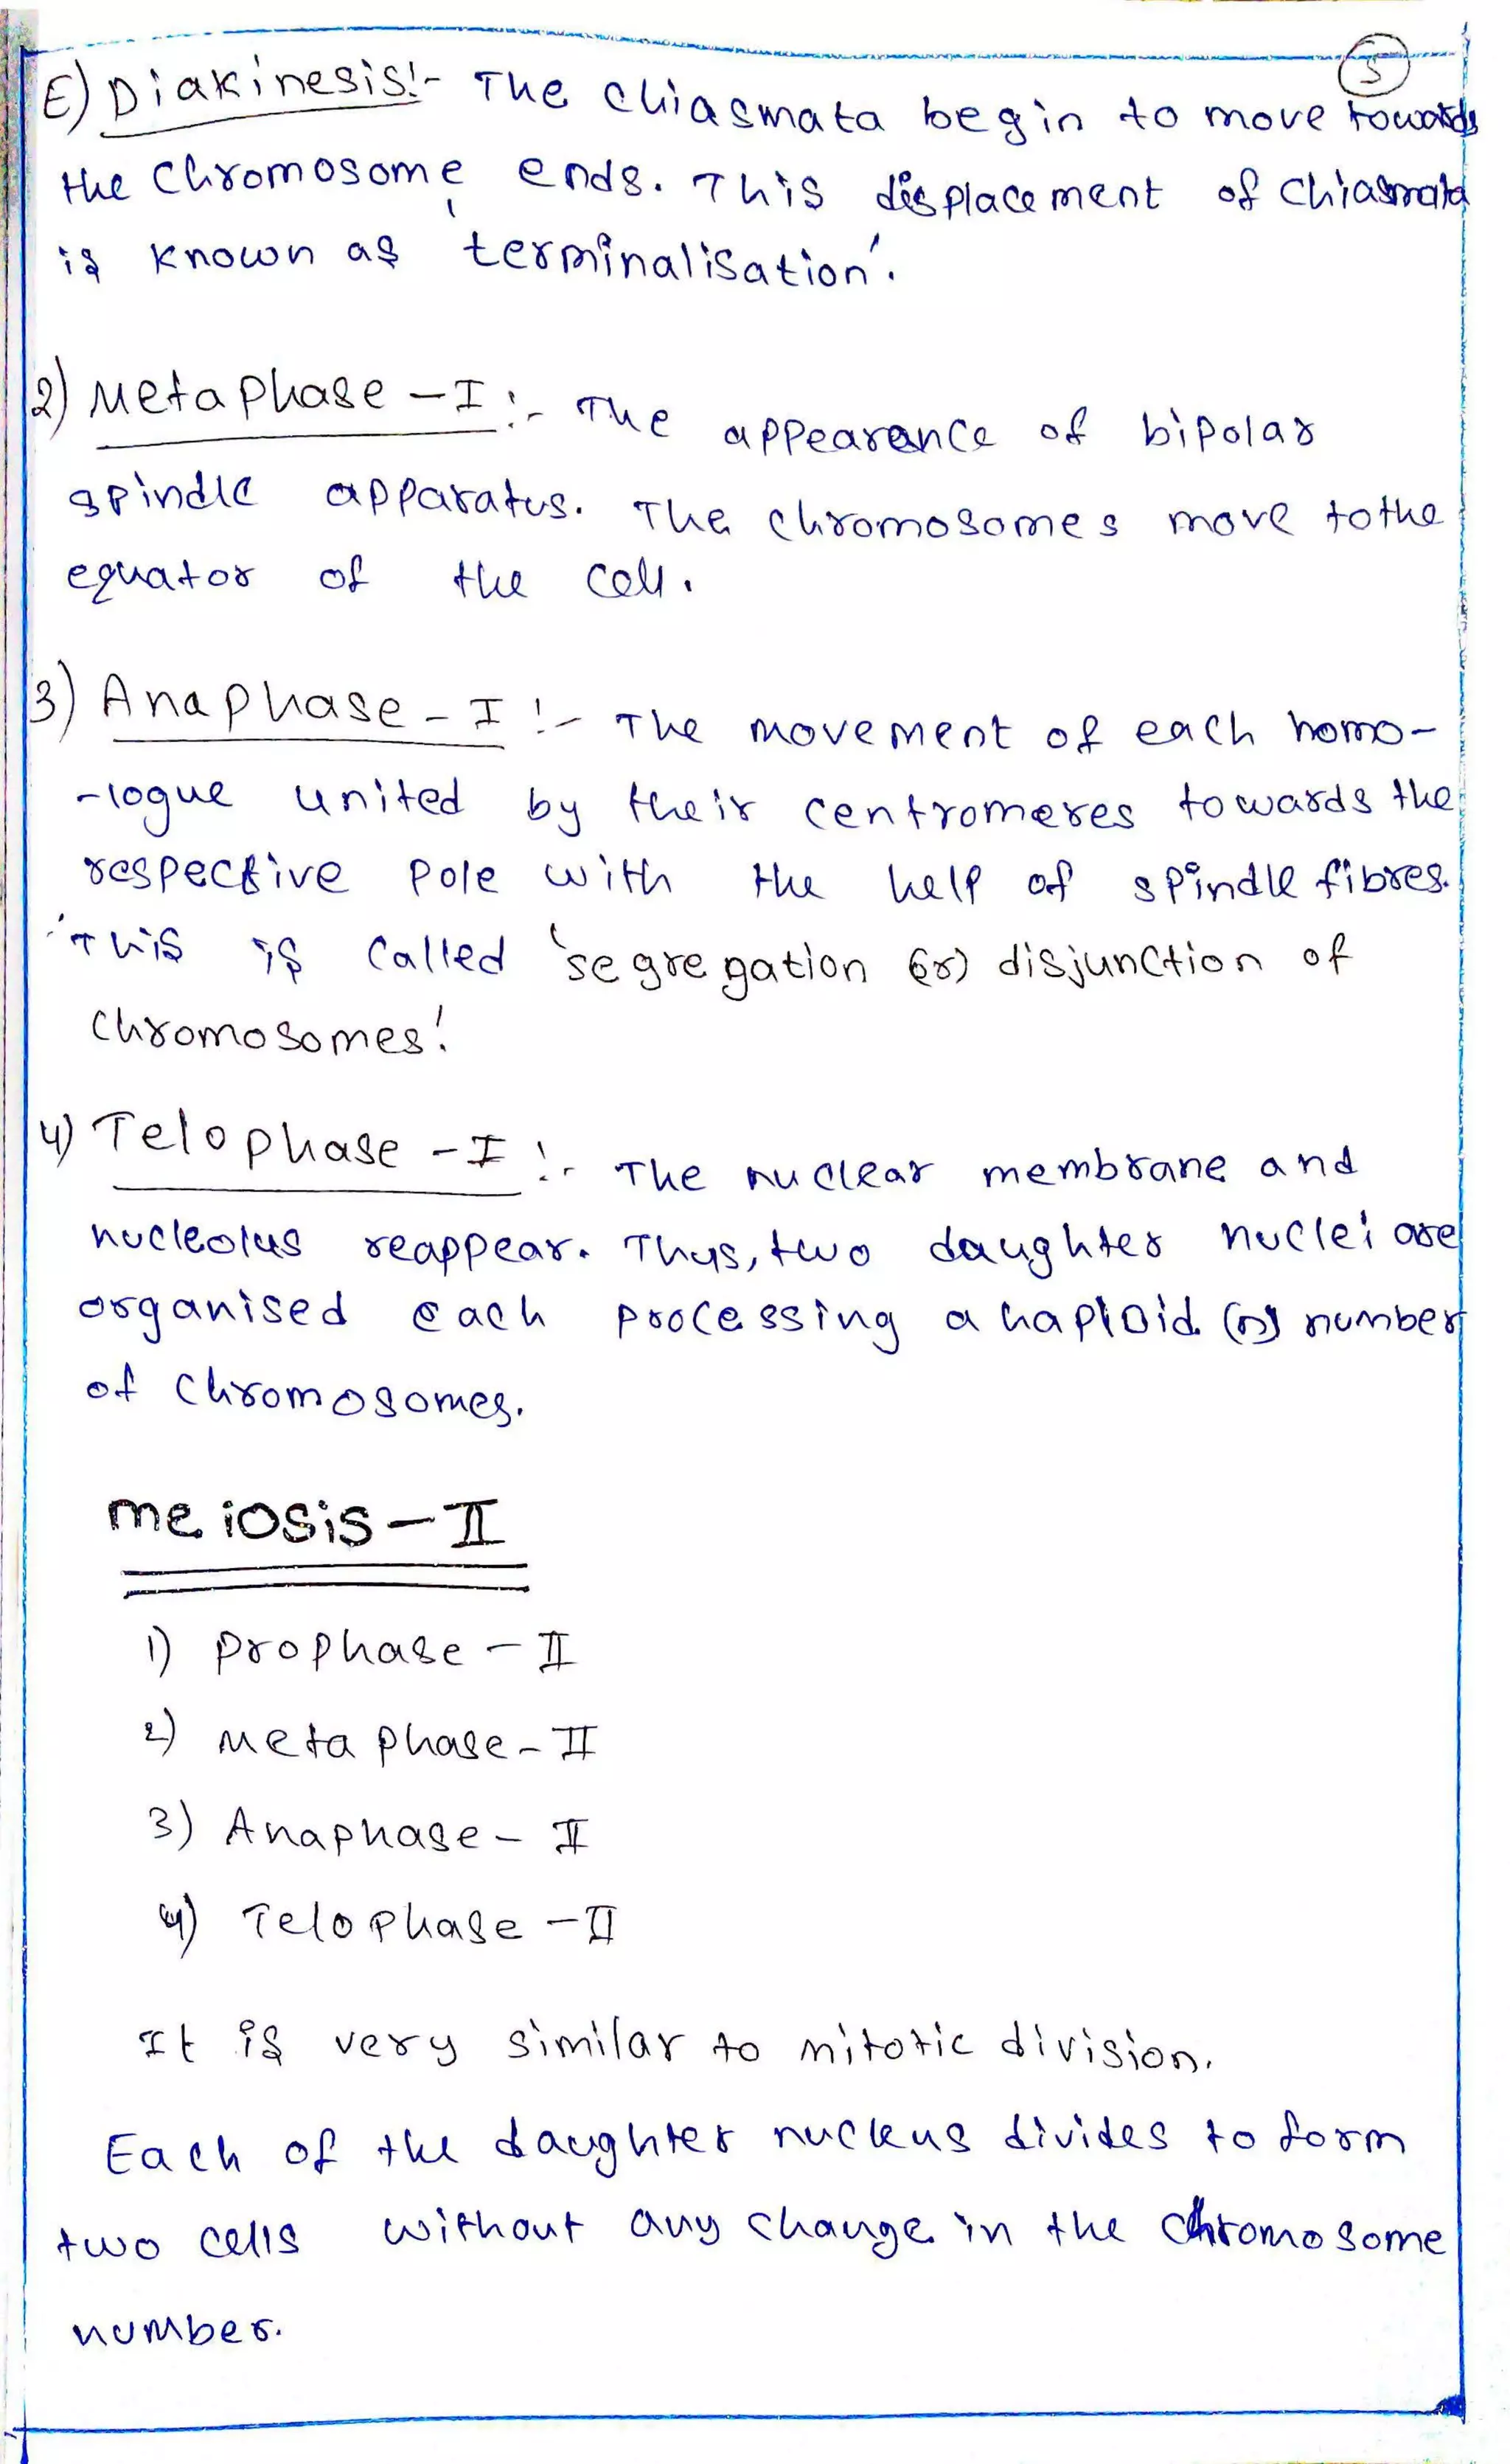 5
E) Diakinesis:- The chiasmata begin to move towards
the Chromosome ends. This displacement of Chiasmata
is known as 'terminalisation'.
2) Metaphase - I :- The appearance of bipolar
spindle apparatus. The chromosomes move to the
equator of the cell.
3) Anaphase - I :- The movement of each homo-
-logue united by their centromeres towards the
respective Pole with the help of spindle fibres.
This is called 'segregation (or) disjunction of
Chromosomes'.
4) Telophase - I :- The nuclear membrane and
nucleolus reappear. Thus, two daughter nuclei are
organised each processing a haploid (n) number
of Chromosomes.
meiosis - II
1) Prophase - II
2) Metaphase - II
3) Anaphase - II
4) Telophase - II
It is very similar to mitotic division.
Each of the daughter nucleus divides to form
two cells without any change in the chromosome
number.